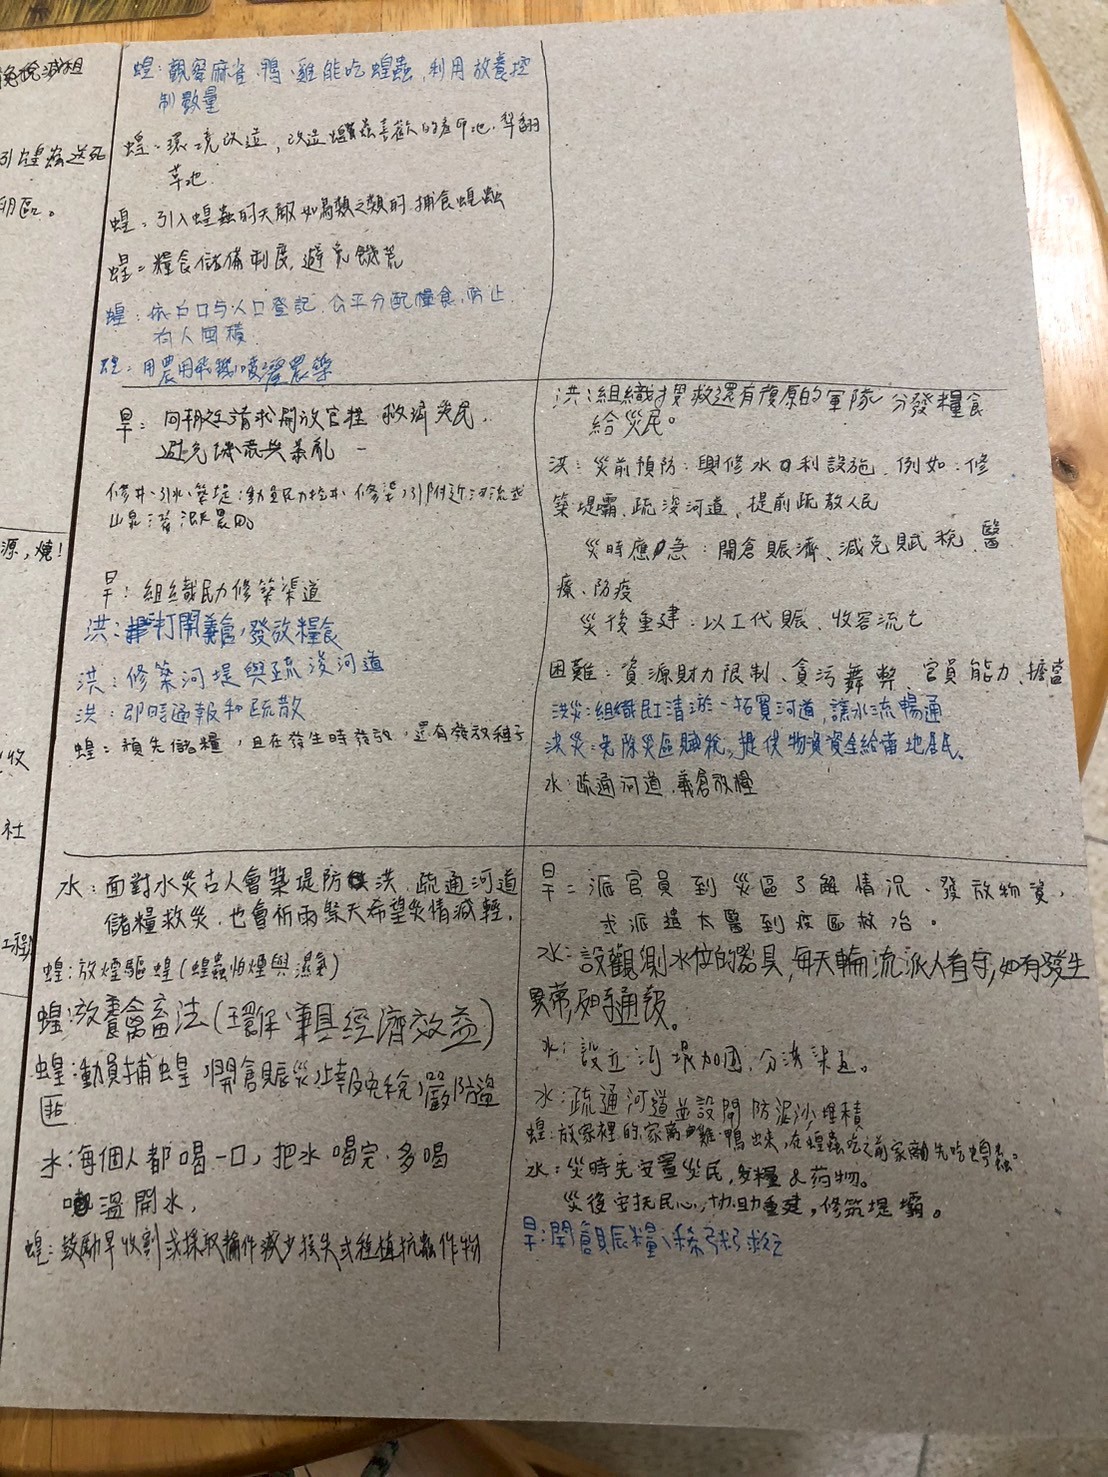 免稅減租
引蝗蟲送死
卵區。
源，燒！
收
社
工程
蝗：觀察麻雀、鴨、雞能吃蝗蟲，利用放養控
制數量
蝗：環境改造，改造蝗蟲喜歡的產卵地．犁翻
草地
蝗：引入蝗蟲的天敵如鳥類之類的 捕食蝗蟲
蝗：糧食儲備制度，避免饑荒
蝗：依戶口与人口登記，公平分配糧食，防止
有人囤積
蝗：用農用飛機噴灑農藥
旱：向朝廷請求開放官糧 救濟災民，
避免饑荒與暴亂
修井、引水、築堤：動員民力挖井、修渠，引附近河流或
山泉灌溉農田。
旱：組織民力修築渠道
洪：打開義倉，發放糧食
洪：修築河堤與疏浚河道
洪：即時通報和疏散
蝗：預先儲糧，且在發生時發放，還有發放種子
洪：組織搜救還有復原的軍隊 分發糧食
給災民。
洪：災前預防：興修水利設施，例如：修
築堤霸、疏浚河道、提前疏散人民
災時應急：開倉賑濟、減免賦稅、醫
療、防疫
災後重建：以工代賑、收容流亡
困難：資源財力限制、貪污舞弊、官員能力、擔當
洪災：組織民工清淤、拓寬河道，讓水流暢通
洪災：免除災區賦稅，提供物資資金給當地居民。
水：疏通河道、義倉放糧
水：面對水災古人會築堤防洪、疏通河道
儲糧救災．也會祈雨祭天希望災情減輕．
蝗：放煙驅蝗（蝗蟲怕煙與濕氣）
蝗：放養禽畜法（環保、兼具經濟效益）
蝗：動員捕蝗，開倉賑災，上報免稅，嚴防盜
匪
水：每個人都喝一口，把水喝完．多喝
溫開水，
蝗：鼓勵早收割或採取輪作減少損失或種植抗蟲作物
旱：派官員到災區了解情況、發放物資，
或派遣太醫到疫區救治。
水：設觀測水位的器具，每天輪流派人看守，如有發生
異常，即時通報。
水：設立河堤加固，分洪渠道。
水：疏通河道並設閘防泥沙堆積
蝗：放家裡的家禽雞鴨出來，在蝗蟲吃之前家禽先吃蝗蟲。
水：災時先安置災民，發糧&药物。
災後安抚民心，协助重建，修筑堤壩。
旱：開倉賑糧、稀粥救之